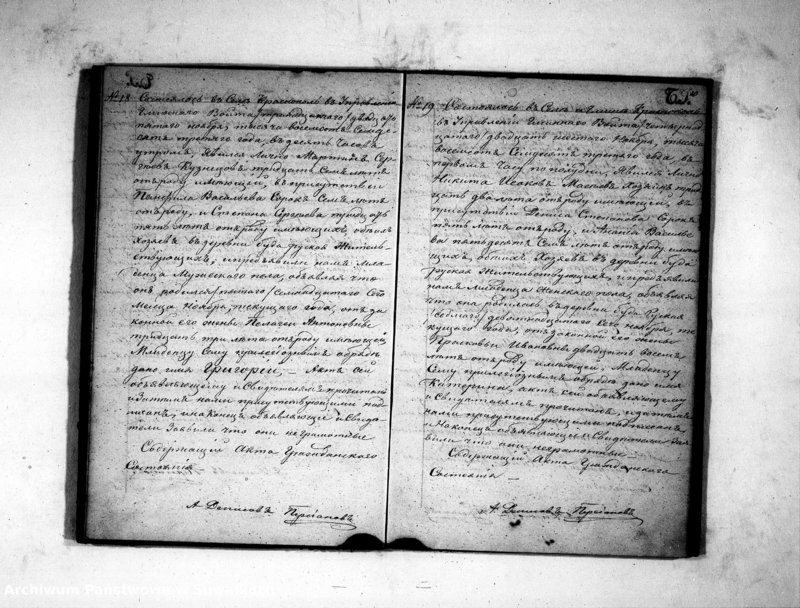 № 18 Состоялось въ Селѣ Краснополѣ въ Управленіи
Гминнаго Войта /тринадцатаго/ двадцать
пятаго Ноября тысяча восемьсотъ Семьдесятъ
третьяго года, въ десять часовъ
утромъ. Явился Лично Мартинъ Сергѣевъ
Кузнецовъ тридцать Семь лѣтъ
отъ роду имѣющій, въ присутствіи
Панфила Васильева Сорокъ Семь лѣтъ
отъ роду, и Степана Сергѣева тридцать
пять лѣтъ отъ роду имѣющихъ, обоихъ
Хозяевъ въ деревни Буда руская Жительствующихъ,
и предъявили намъ Младенца
Мужескаго пола, объявляя что
онъ родился /пятаго/ семнадцатаго Сего
Мѣсяца Ноября, текущаго года, отъ законной
его жены Пелагеи Антоновны
тридцать три лѣта отъ роду имѣющей,
Младенцу Сему при религіозномъ обрядѣ
дано имя Григорій. — Актъ сей
объявляющему и Свидѣтелямъ прочитанъ
и Затѣмъ нами присутствующими подписанъ,
и наконецъ объявляющій и Свидѣтели
Заявили что они неграмотные
Содержащій Акты Гражданскаго
Состоянія
А Денисовъ
№ 19 Состоялось въ Селѣ Краснополѣ
въ Управленіи Гминнаго Войта /четырнадцатаго/
двадцать шестаго Ноября, тысяча
восемьсотъ Семьдесятъ третьяго года въ
первомъ часу по полудни, Явился Лично
Никита Исаковъ Хозяинъ тридцать
два лѣта отъ роду имѣющій, въ
присутствіи Дениса Степанова Сорокъ
пять лѣтъ отъ роду, и Васильева
пятьдесятъ Семь лѣтъ отъ роду имѣющихъ,
обоихъ Хозяевъ въ деревни Буда
руская Жительствующихъ, и предъявили
намъ Младенца Женскаго пола, объявляя
что она родилась въ деревни Буда Руская
/седьмаго/ девятнадцатаго Сего Ноября, текущаго
года, отъ законной его жены
Прасковьи Ивановны двадцать восемь
лѣтъ отъ роду имѣющей, Младенцу
Сему при религіозномъ обрядѣ дано имя
Катерина, актъ сей объявляющему
и Свидѣтелямъ прочитанъ, и затѣмъ
нами присутствующими подписанъ
и Наконецъ объявляющій и Свидѣтели Заявили
что они неграмотные. —
Содержащій Акты Гражданскаго
Состоянія —
А. Денисовъ
Archiwum Państwowe w Suwałkach